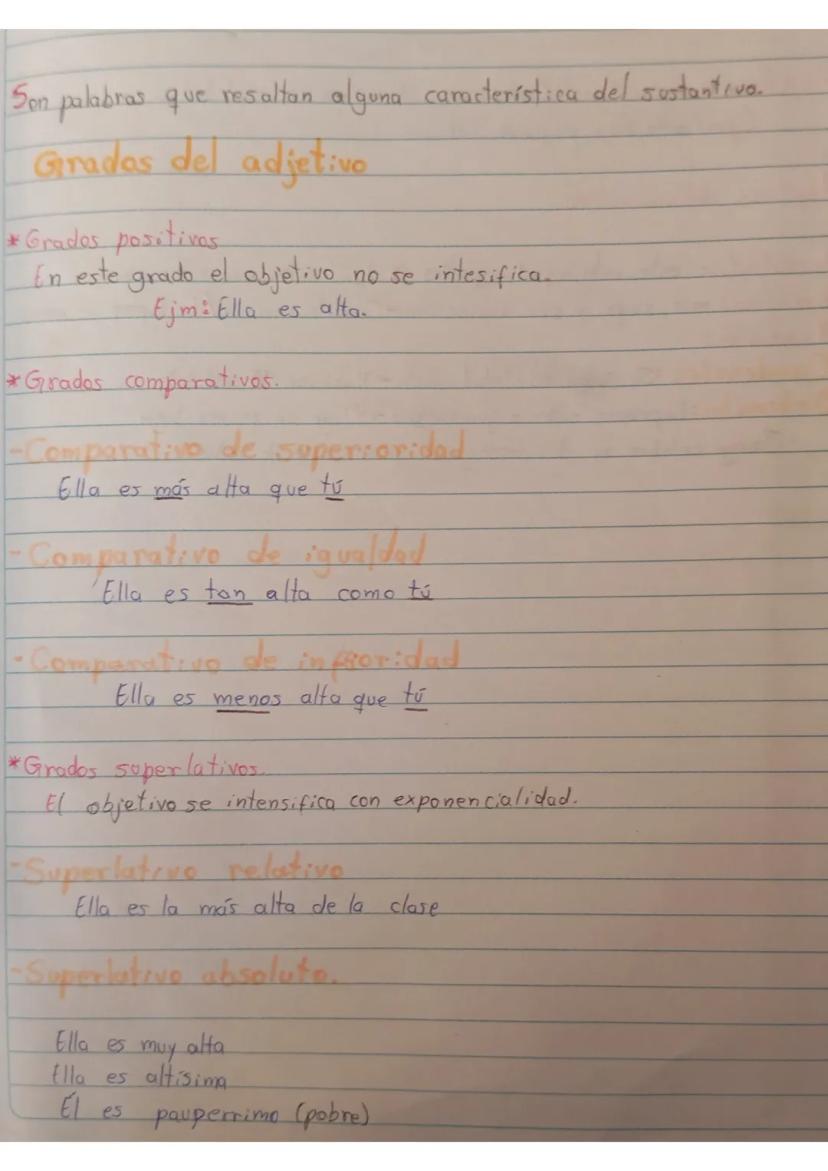 Son palabras que resaltan alguna característica del sustantivo.
Grados del adjetivo
*Grados positivos
En este grado el objetivo no se intesifica.
Ejm: Ella es alta.
*Grados comparativos.
-Comparativo de superioridad
Ella es más alta que tú
-Comparativo de igualdad
Ella es tan alta como tú
-Comparativo de inferioridad
Ella es menos alta que tú
*Grados superlativos.
El objetivo se intensifica con exponencialidad.
-Superlativo relativo
Ella es la más alta de la clase
-Superlativo absoluto.
Ella es muy alta
Ella es altísima
Él es pauperrimo (pobre)